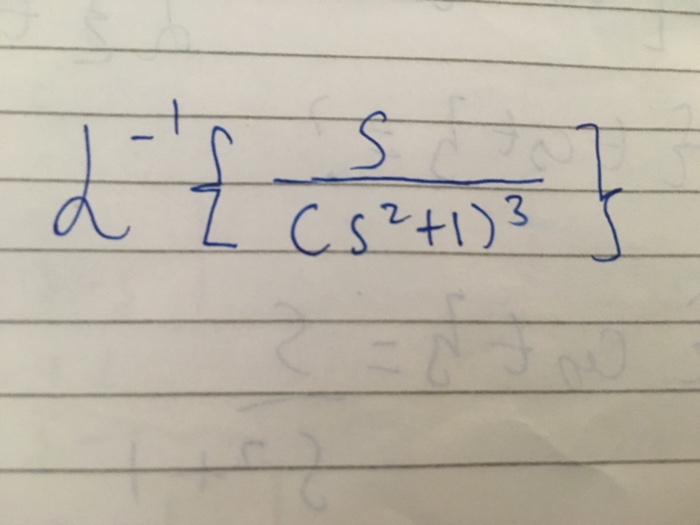 ℒ⁻¹{ s / (s²+1)³ }